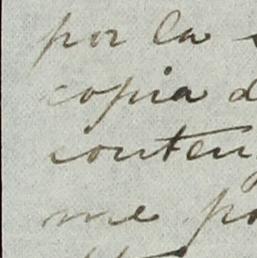 por la
copia d
conten
me po